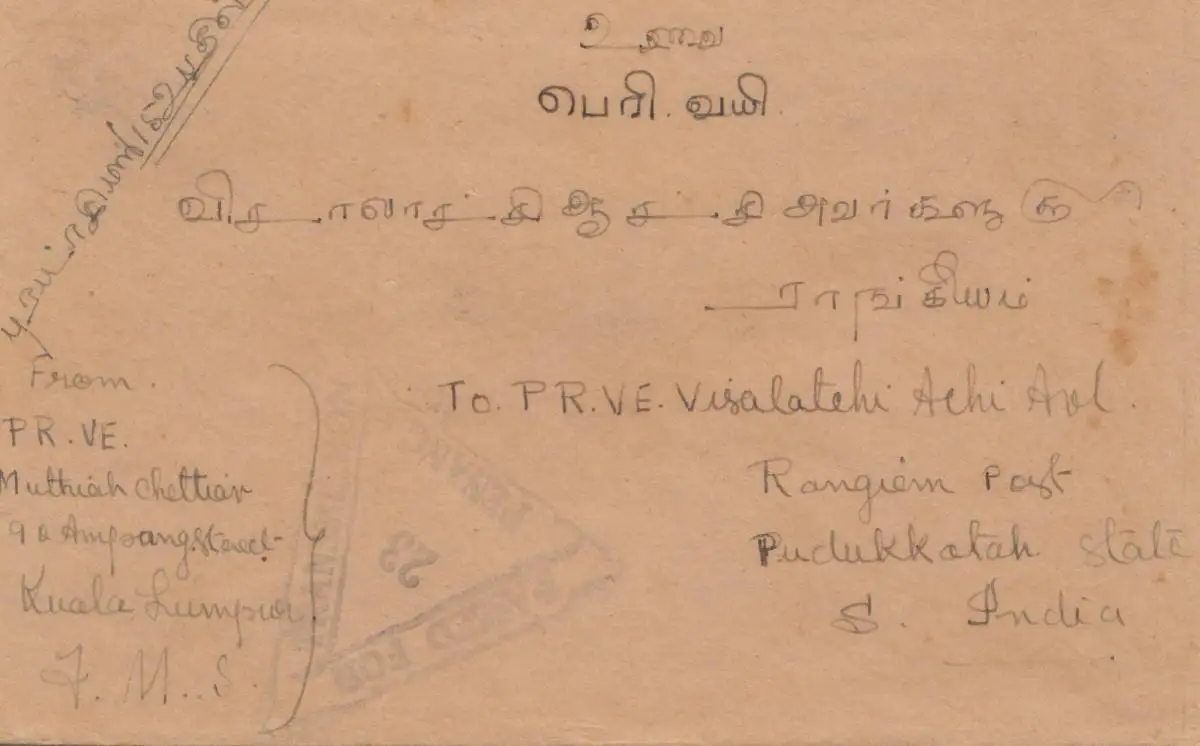 உ
பெரி. வயி.
விசாலாட்சி ஆச்சி அவர்களுக்கு
ராங்கியம்
From.
PR.VE.
Muthiah Chettiar
9 a Ampang Street
Kuala Lumpur
F. M. S.
To. PR.VE. Visalatchi Achi Avl.
Rangiem Post
Pudukkotah State
S. India
PENANG
23
PASSED FOR